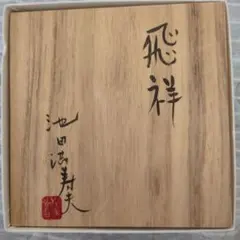 飛祥
池田満寿夫